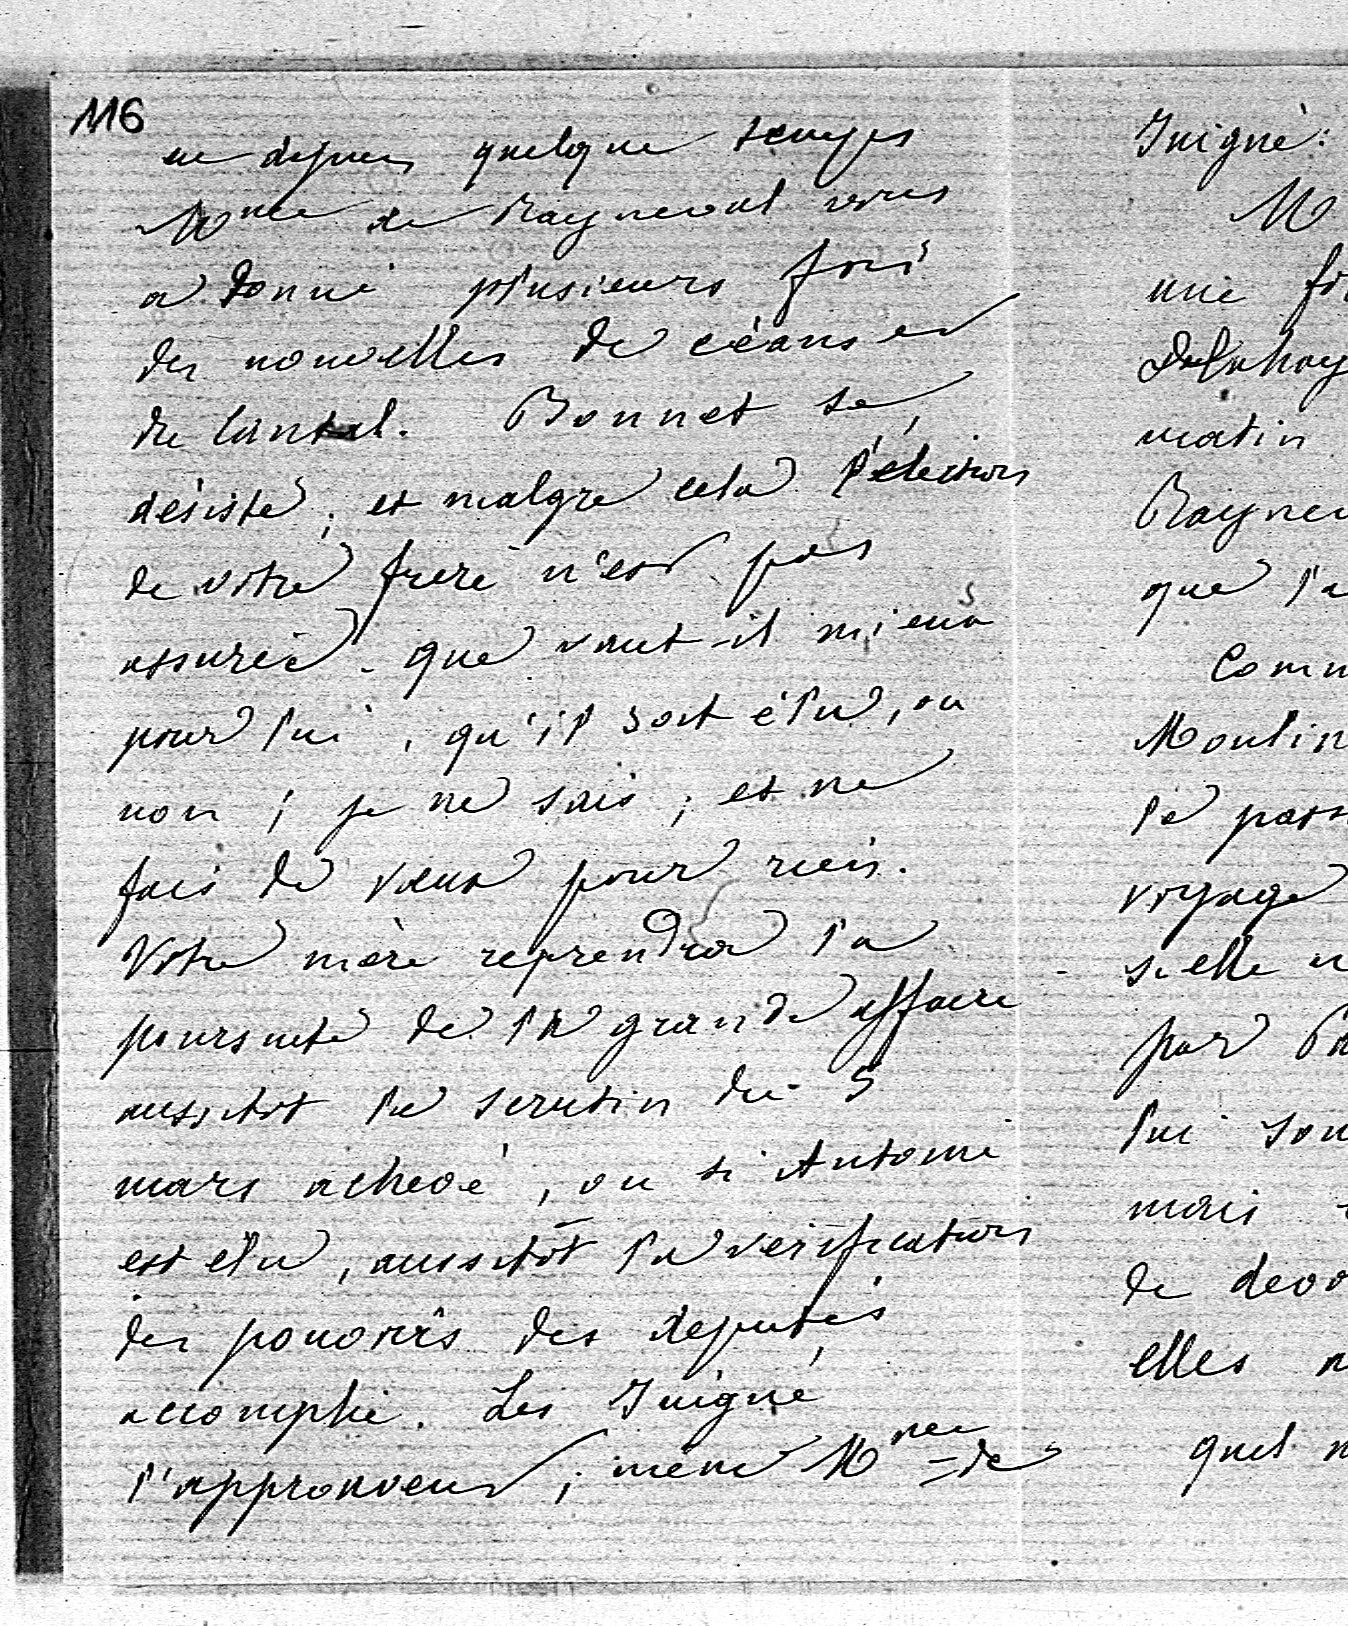 116
ne depuis quelque temps
Mme de Rayneval vous
a donné plusieurs fois
des nouvelles de céans et
du Cantal. Bonnet se
désiste ; et malgré cela l'élection
de votre frère n'est pas
assurée. que vaut-il mieux
pour lui, qu'il soit élu, ou
non ; je ne sais ; et ne
fais de vœux pour rien.
Votre mère reprendra la
poursuite de la grande affaire
aussitot le scrutin du 5
mars achevé, ou si Antoine
est élu, aussitôt la verification
des pouvoirs des députés
accomplie. Les Juigné
l'approuvent ; même Mme de
Juigné.
M
une
matin
que l'a
Moulin
le
voyage
si elle n
par
lui
mais
de
elles
quel